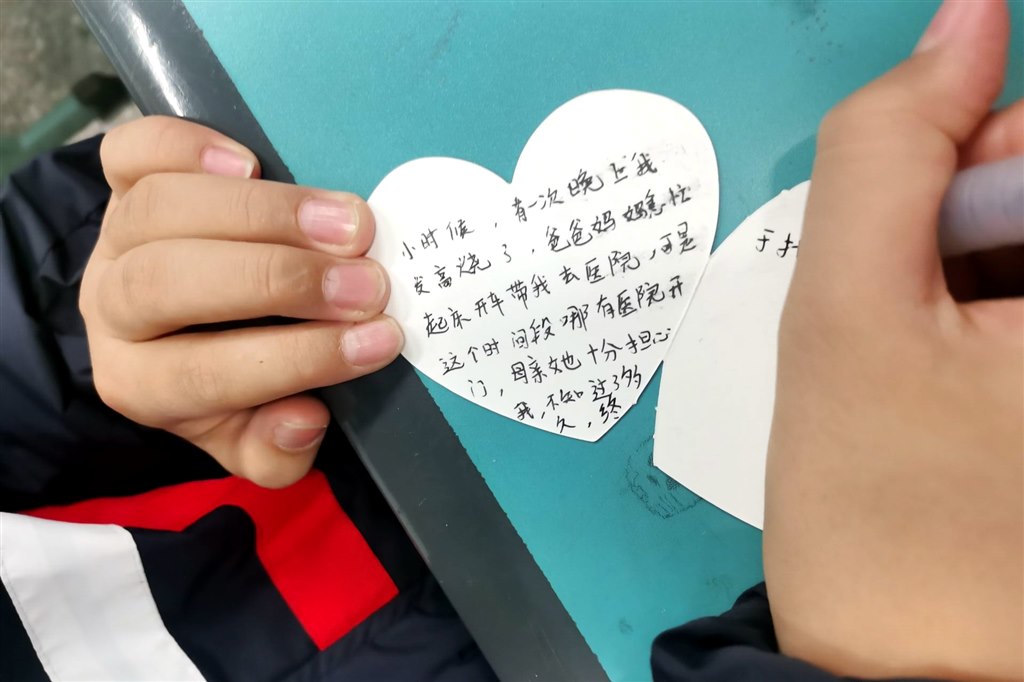 小时候，有一次晚上我
发高烧了，爸爸妈妈急忙
起来开车带我去医院，可是
这个时间段哪有医院开
门，母亲她十分担心
我，不知过了多
久，终
于找